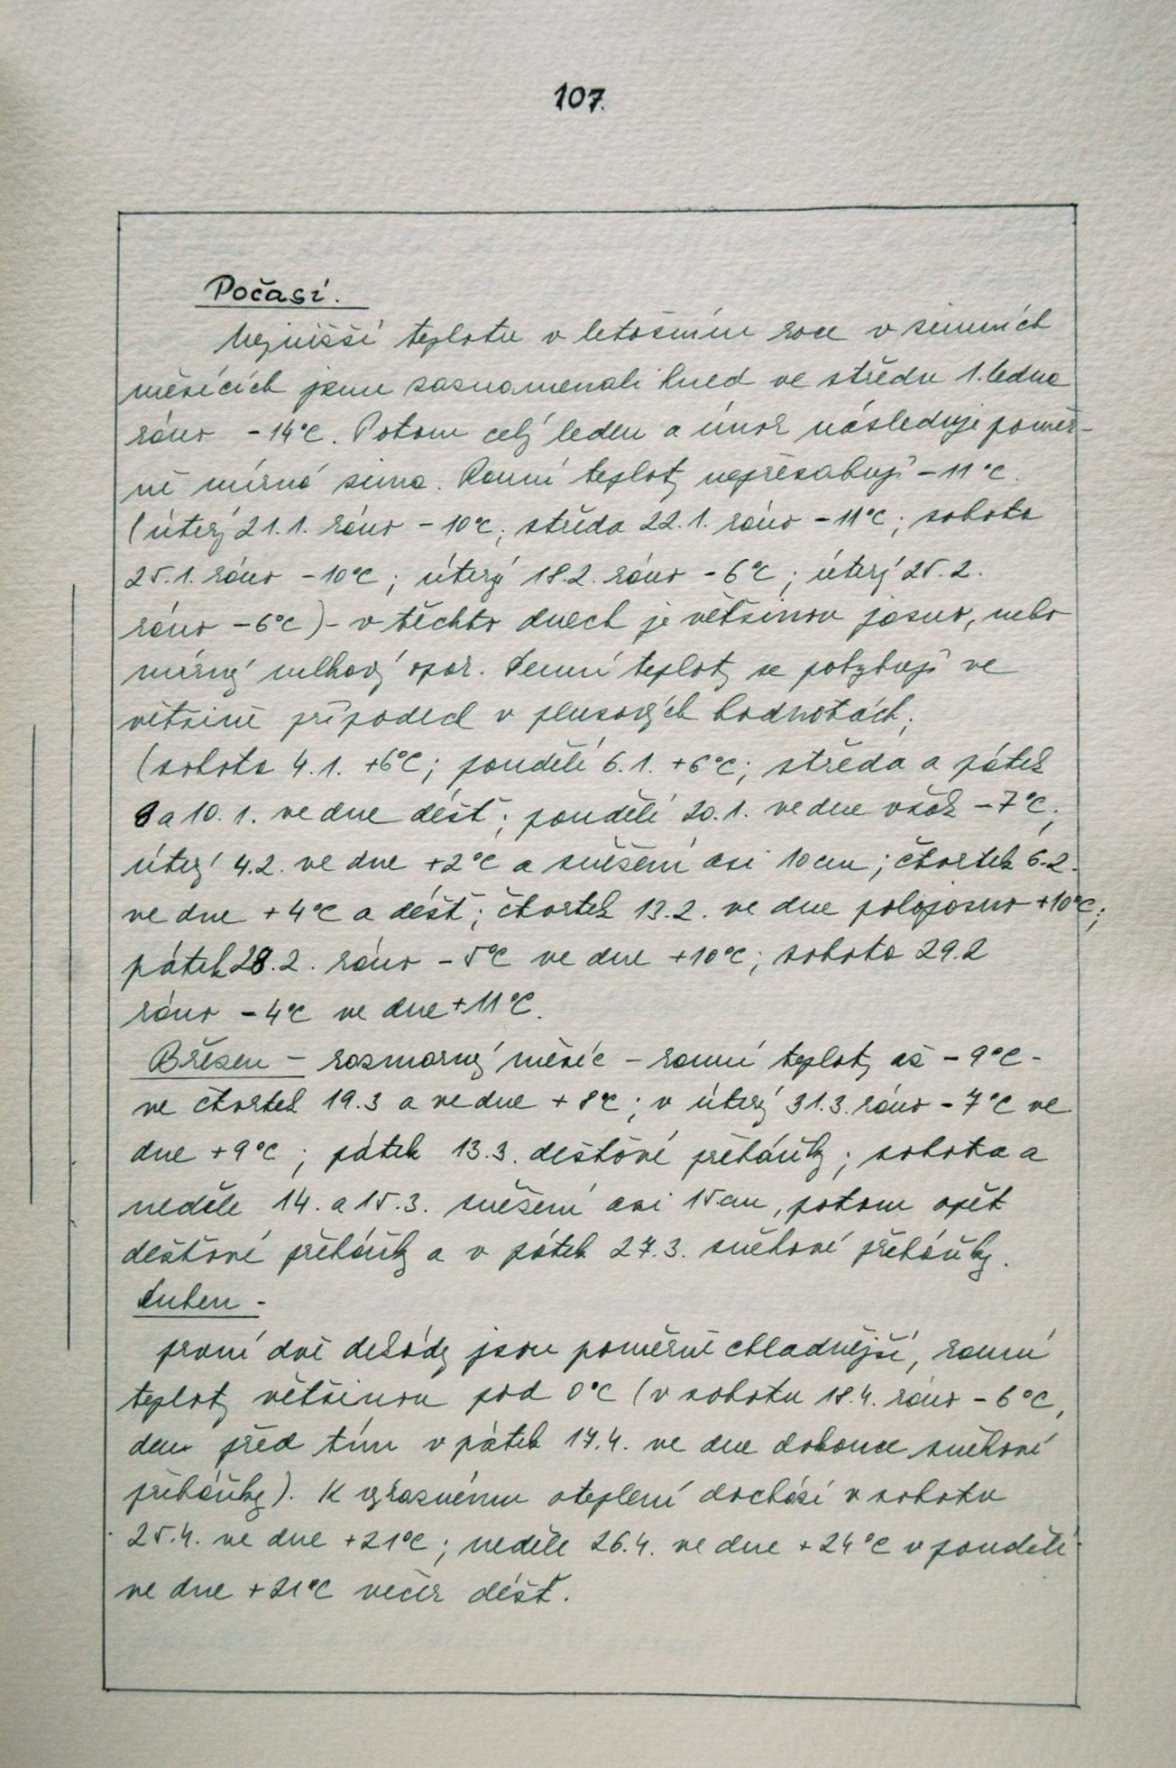 107.
Počasí.
Nejnižší teplotu v letošním roce v zimních
měsících jsme zaznamenali hned ve středu 1. ledna
ráno -14°C. Potom celý leden a únor následuje poměr-
ně mírná zima. Ranní teploty nepřesahují -11°C.
(úterý 21.1. ráno -10°C; středa 22.1. ráno -11°C; sobota
25.1. ráno -10°C; úterý 18.2. ráno -6°C; úterý 25.2.
ráno -6°C) - v těchto dnech je většinou jasno, nebo
mírný mlhový opar. Denní teploty se pohybují ve
většině případech v plusových hodnotách;
(sobota 4.1. +6°C; pondělí 6.1. +6°C; středa a pátek
8 a 10.1. ve dne déšť; pondělí 20.1. ve dne však -7°C;
úterý 4.2. ve dne +2°C a sněžení asi 10 cm; čtvrtek 6.2.
ve dne +4°C a déšť; čtvrtek 13.2. ve dne polojasno +10°C;
pátek 28.2. ráno -5°C ve dne +10°C; sobota 29.2
ráno -4°C ve dne +11°C.
Březen - rozmarný měsíc - ranní teploty až -9°C -
ve čtvrtek 19.3 a ve dne +8°C; v úterý 31.3. ráno -7°C ve
dne +9°C; pátek 13.3. dešťové přeháňky; sobota a
neděle 14. a 15.3. sněžení asi 15 cm, potom opět
dešťové přeháňky a v pátek 27.3. sněhové přeháňky.
Duben -
první dvě dekády jsou poměrně chladnější, ranní
teploty většinou pod 0°C (v sobotu 18.4. ráno -6°C,
den před tím v pátek 17.4. ve dne dokonce sněhové
přeháňky). K výraznému oteplení dochází v sobotu
25.4. ve dne +21°C; neděle 26.4. ve dne +24°C v pondělí
ve dne +21°C večer déšť.